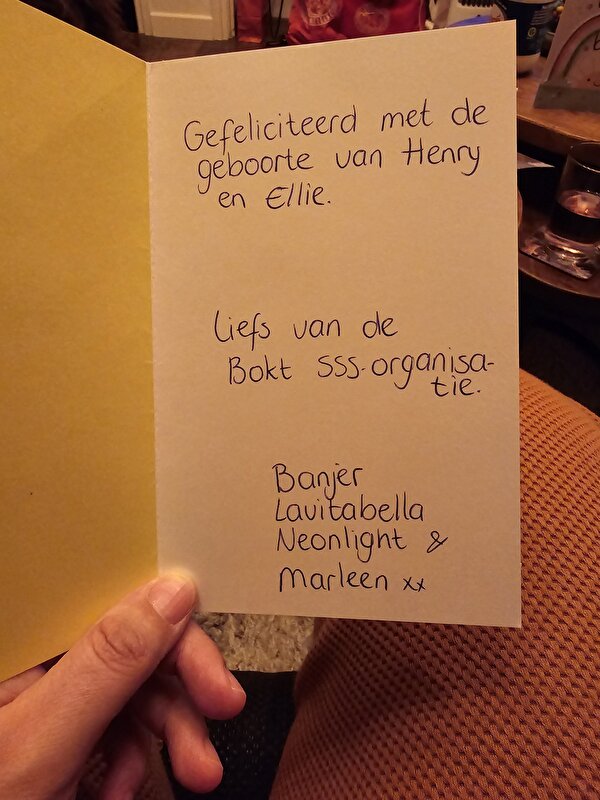 Gefeliciteerd met de
geboorte van Henry
en Ellie.
Liefs van de
Bokt SSS-organisa-
tie.
Banjer
Lavitabella
Neonlight &
Marleen xx